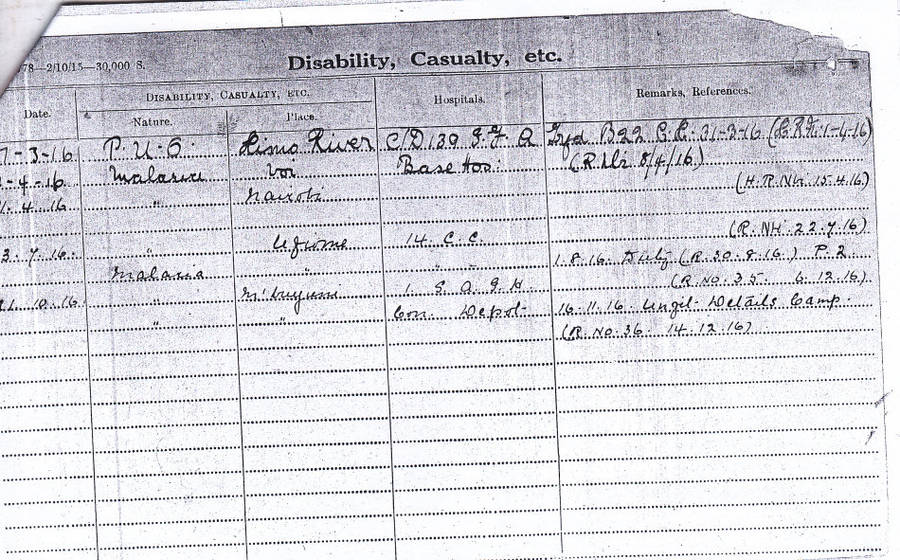 78—2/10/15—30,000 S.
Disability, Casualty, etc.
Date.
DISABILITY, CASUALTY, ETC.
Nature.
Place.
Hospitals.
Remarks, References.
7-3-16 P. U. O. River C/D 139 31-3-16 1-4-16)
-4-16 Malaria Voi Base Hos: 8/4/16)
1. 4. 16 " Nairobi (H.R.NH. 15.4.16)
(R. NH. 22.7.16)
3. 7. 16. " Ufiome 14. C. C. 1. 8. 16. Duty (R. 30. 8. 16.) P. 2
Malaria " " " (R. No. 35. 6. 12. 16)
21. 10. 16. " M'buyuni 1. S. A. G. H 16. 11. 16. Details Camp.
" " Con. Depot- (R. No. 36. 14. 12. 16)